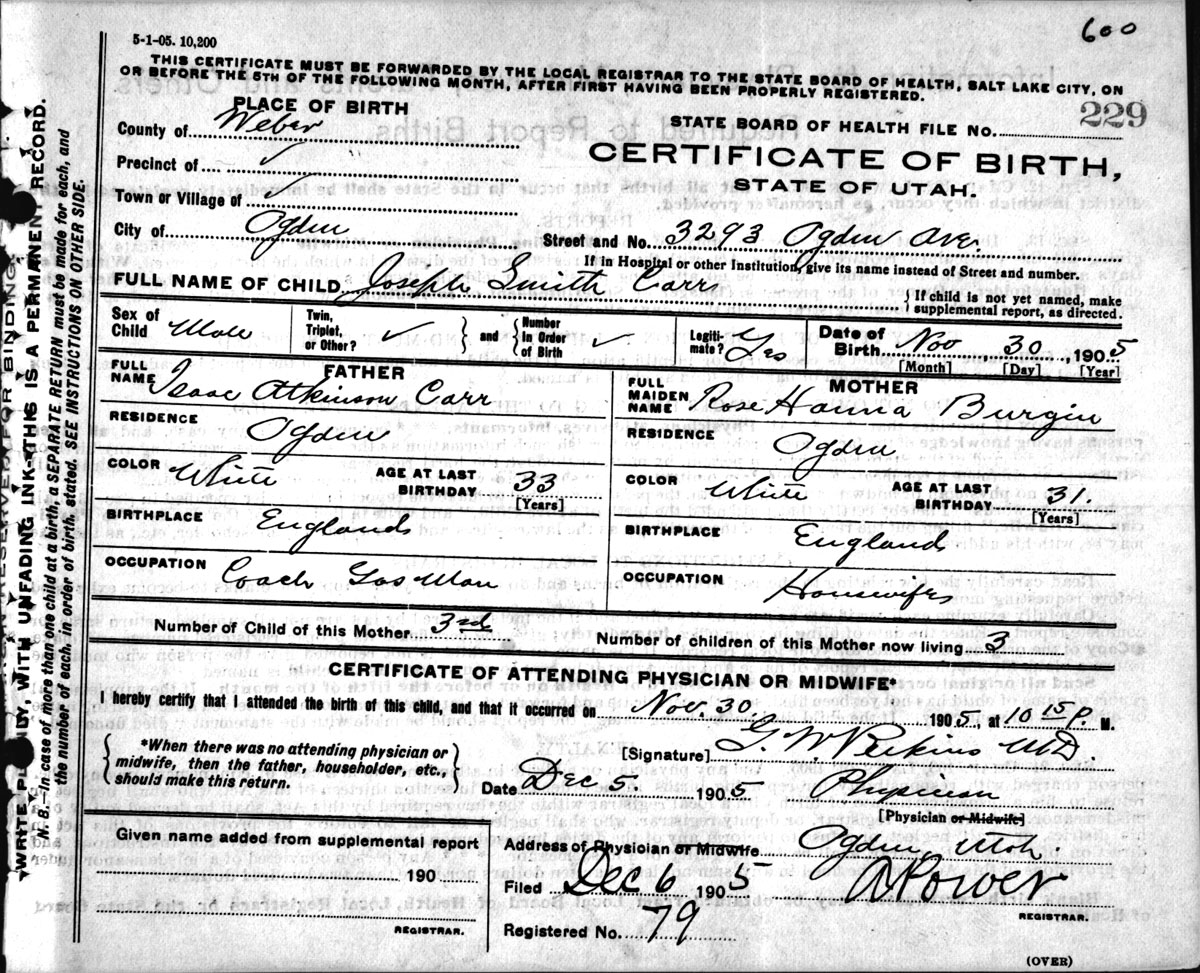 600
5-1-05. 10,200
THIS CERTIFICATE MUST BE FORWARDED BY THE LOCAL REGISTRAR TO THE STATE BOARD OF HEALTH, SALT LAKE CITY, ON
OR BEFORE THE 5TH OF THE FOLLOWING MONTH, AFTER FIRST HAVING BEEN PROPERLY REGISTERED.
PLACE OF BIRTH
STATE BOARD OF HEALTH FILE NO. 229
County of Weber
CERTIFICATE OF BIRTH,
Precinct of ✓
STATE OF UTAH.
Town or Village of ✓
City of Ogden
Street and No. 3293 Ogden Ave.
If in Hospital or other Institution, give its name instead of Street and number.
FULL NAME OF CHILD Joseph Smith Carr
{ If child is not yet named, make
supplemental report, as directed.
Sex of Child Male
Twin, Triplet, or Other? ✓ } and { Number in Order of Birth ✓
Legiti-mate? Yes
Date of Birth Nov 30, 1905
[Month] [Day] [Year]
FATHER
FULL NAME Isaac Atkinson Carr
RESIDENCE Ogden
COLOR White AGE AT LAST BIRTHDAY 33
[Years]
BIRTHPLACE England
OCCUPATION Coach Gas Man
MOTHER
FULL MAIDEN NAME Rose Hanna Burgin
RESIDENCE Ogden
COLOR White AGE AT LAST BIRTHDAY 31.
[Years]
BIRTHPLACE England
OCCUPATION Housewife
Number of Child of this Mother 3rd
Number of children of this Mother now living 3
CERTIFICATE OF ATTENDING PHYSICIAN OR MIDWIFE*
I hereby certify that I attended the birth of this child, and that it occurred on Nov. 30. 1905, at 10 15 P. M.
{ *When there was no attending physician or
midwife, then the father, householder, etc.,
should make this return. }
[Signature] G. W. Perkins MD.
Date Dec 5. 1905
Physician
[Physician or Midwife]
Given name added from supplemental report
190
REGISTRAR.
Address of Physician or Midwife Ogden, Utah.
Filed Dec 6 1905
A Power
REGISTRAR.
Registered No. 79
(OVER)
RESERVE FOR BINDING
WRITE PLAINLY, WITH UNFADING INK—THIS IS A PERMANENT RECORD.
N. B.—In case of more than one child at a birth, a SEPARATE RETURN must be made for each, and
the number of each, in order of birth, stated. SEE INSTRUCTIONS ON OTHER SIDE.